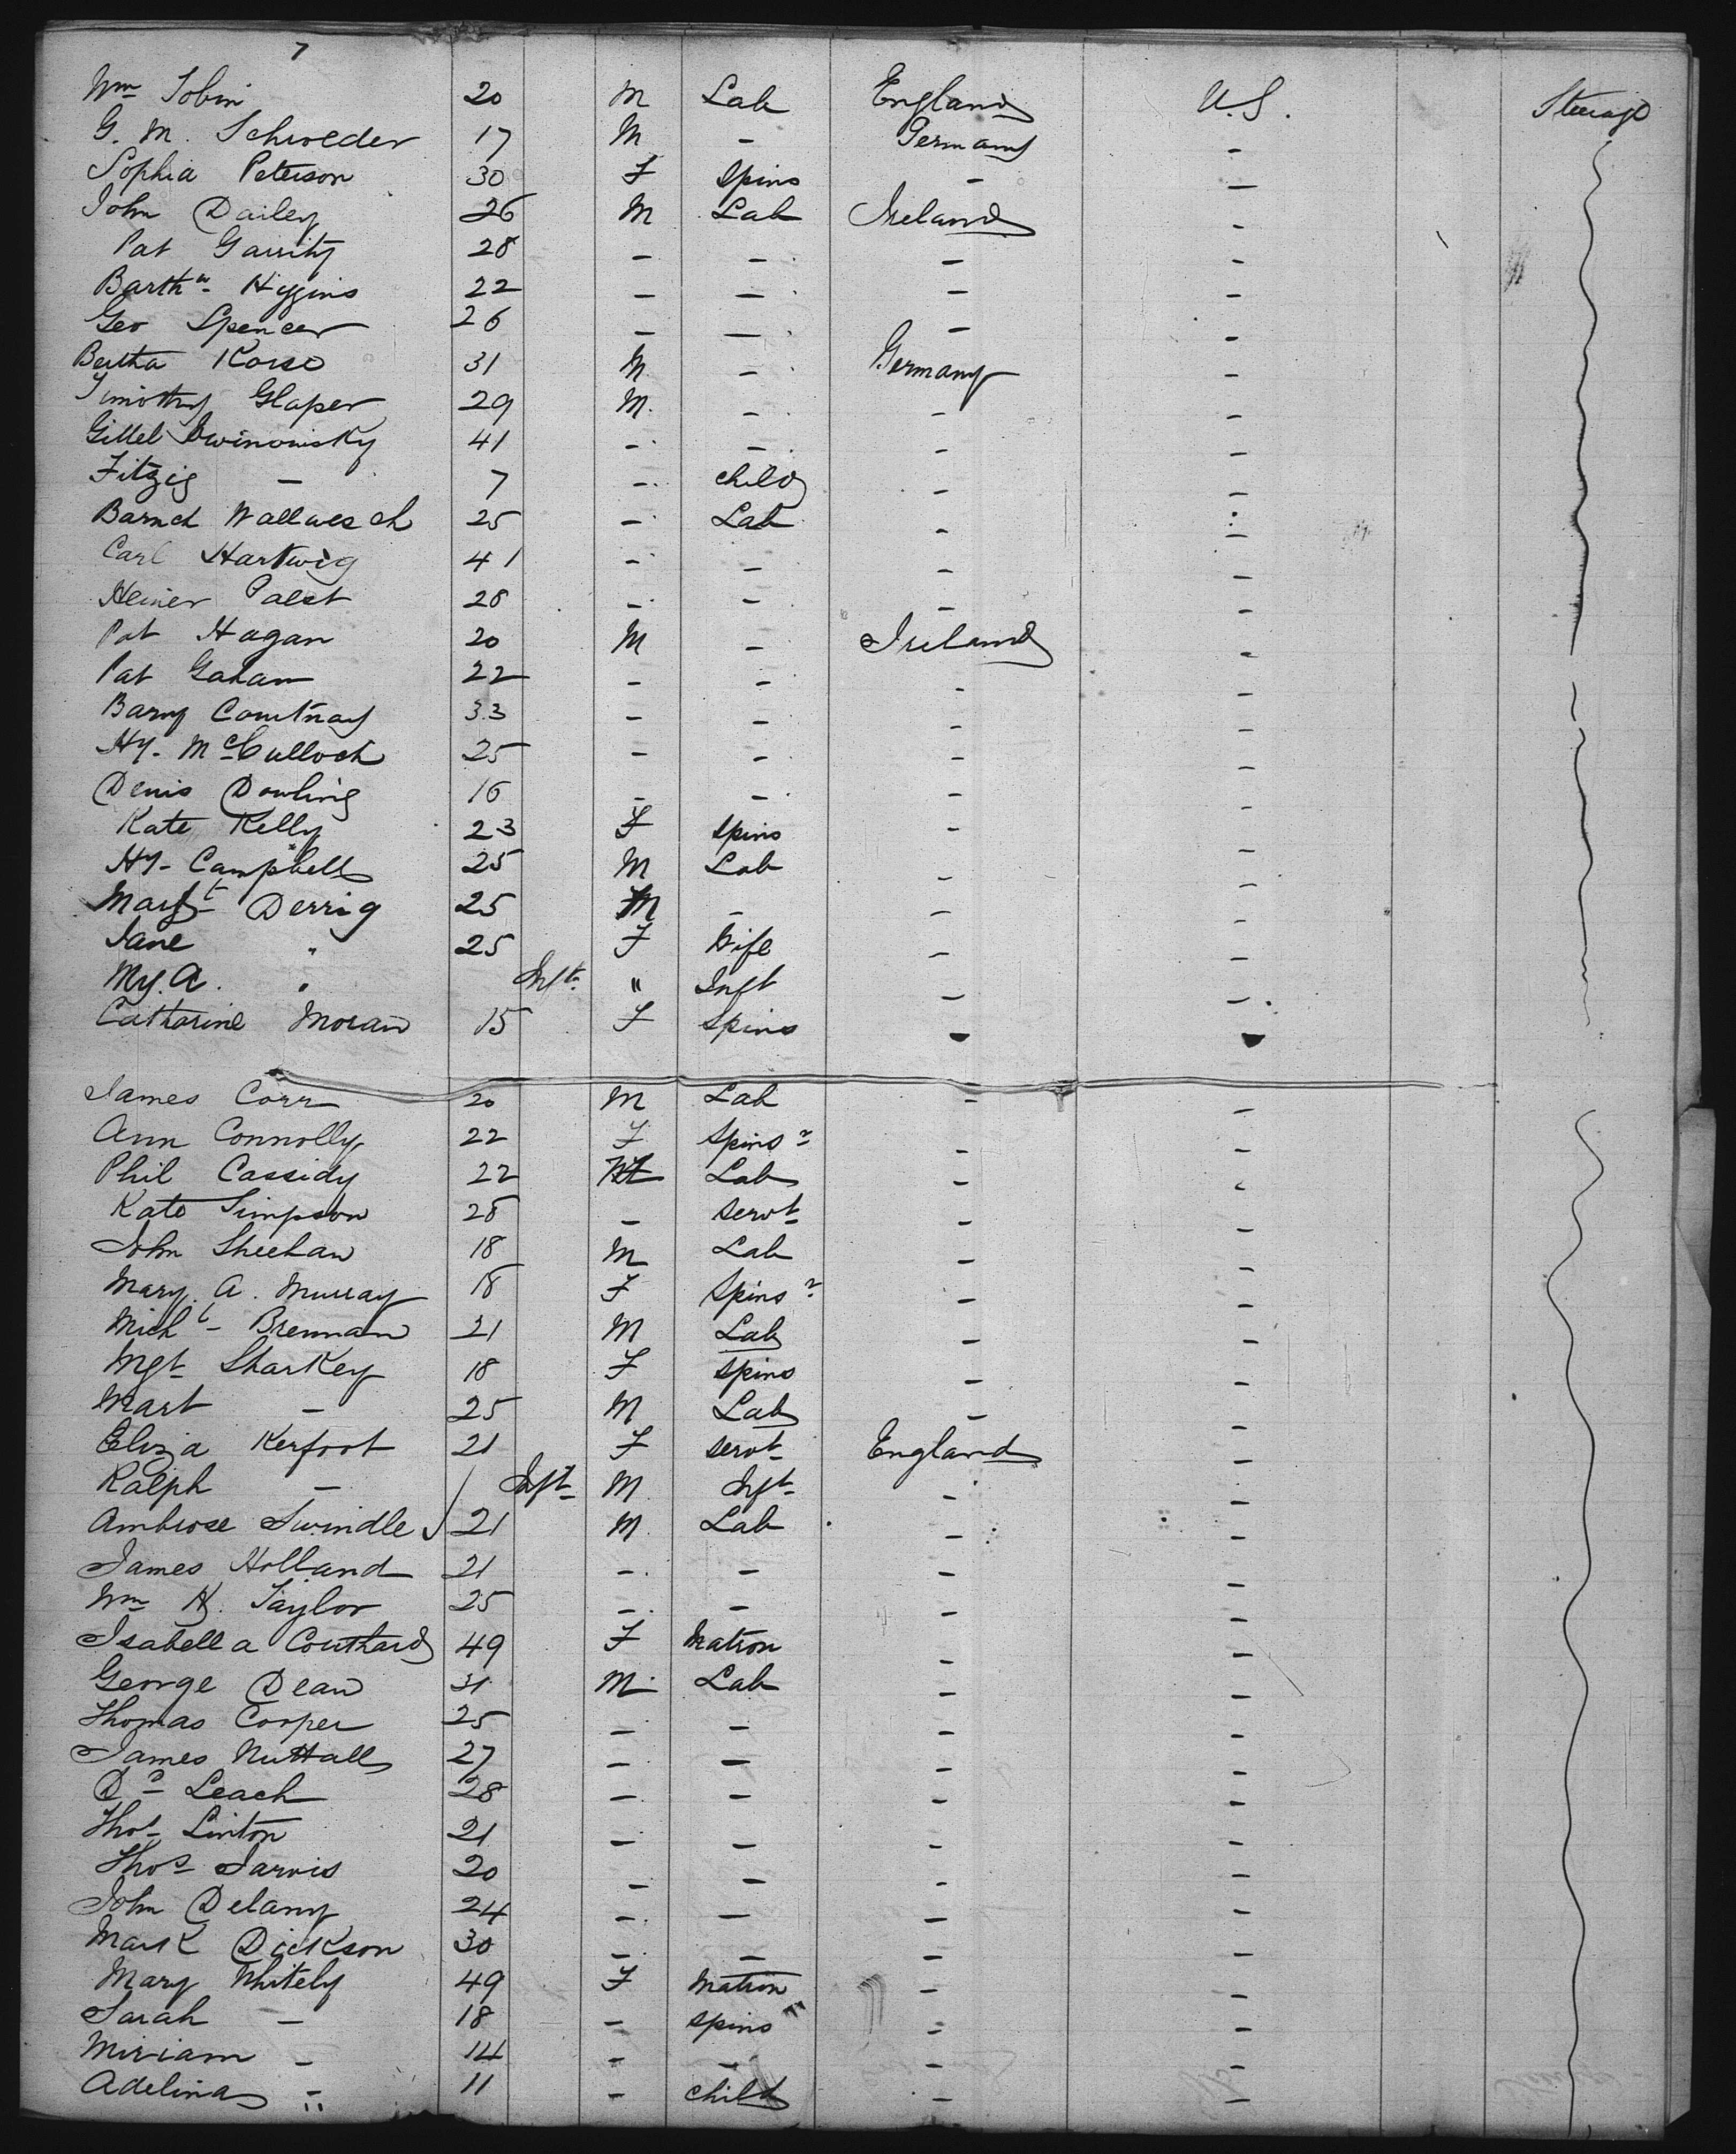 7
Wm Tobin 20 M Lab England U.S. Steerage
G. M. Schroeder 17 M - Germany -
Sophia Peterson 30 F Spins - -
John Dailey 26 M Lab Ireland -
Pat Garrity 28 - - - -
Barthw Higgins 22 - - - -
Geo Spencer 26 - - - -
Bertha Korse 31 M - Germany -
Timothy Glaper 29 M. - - -
Gittel 41 - - - -
Fitzig - 7 - child - -
Barnch Wallwesch 25 - Lab - -
Carl Hartwig 41 - - - -
Heiner Pabst 28 - - - -
Pat Hagan 20 M - Ireland -
Pat Gahan 22 - - - -
Barny Courtnay 33 - - - -
Hy- McCulloch 25 - - - -
Denis Dowling 16 - - - -
Kate Kelly 23 F Spins - -
Hy- Campbell 25 M Lab - -
Margt Derrig 25 M - - -
Jane " 25 F Wife - -
My. A. " Inft. " Inft - -
Catharine Moran 15 F Spins - -
James Corr 20 M Lab - -
Ann Connolly 22 F Spinsr - -
Phil Cassidy 22 M Lab - -
Kate Simpson 28 - Servt - -
John Sheehan 18 M Lab - -
Mary. A. Murray 18 F Spinsr - -
Michl - Brennan 21 M Lab - -
Mgt Sharkey 18 F Spins - -
Mart - 25 M Lab - -
Eliza Kerfoot 21 F Servt England -
Ralph - Inft M Inft - -
Ambrose Swindle 21 M Lab - -
James Holland 21 - - - -
Wm H. Taylor 25 - - - -
Isabella Couthard 49 F Matron - -
George Dean 31 M Lab - -
Thomas Cooper 25 - - - -
James Nuttall 27 - - - -
Dd Leach 28 - - - -
Thos Linton 21 - - - -
Thos Jarvis 20 - - - -
John Delany 24 - - - -
Mark Dickson 30 - - - -
Mary Whitely 49 F Matron - -
Sarah - 18 - Spins - -
Miriam - 14 - - - -
Adelina - 11 - child - -